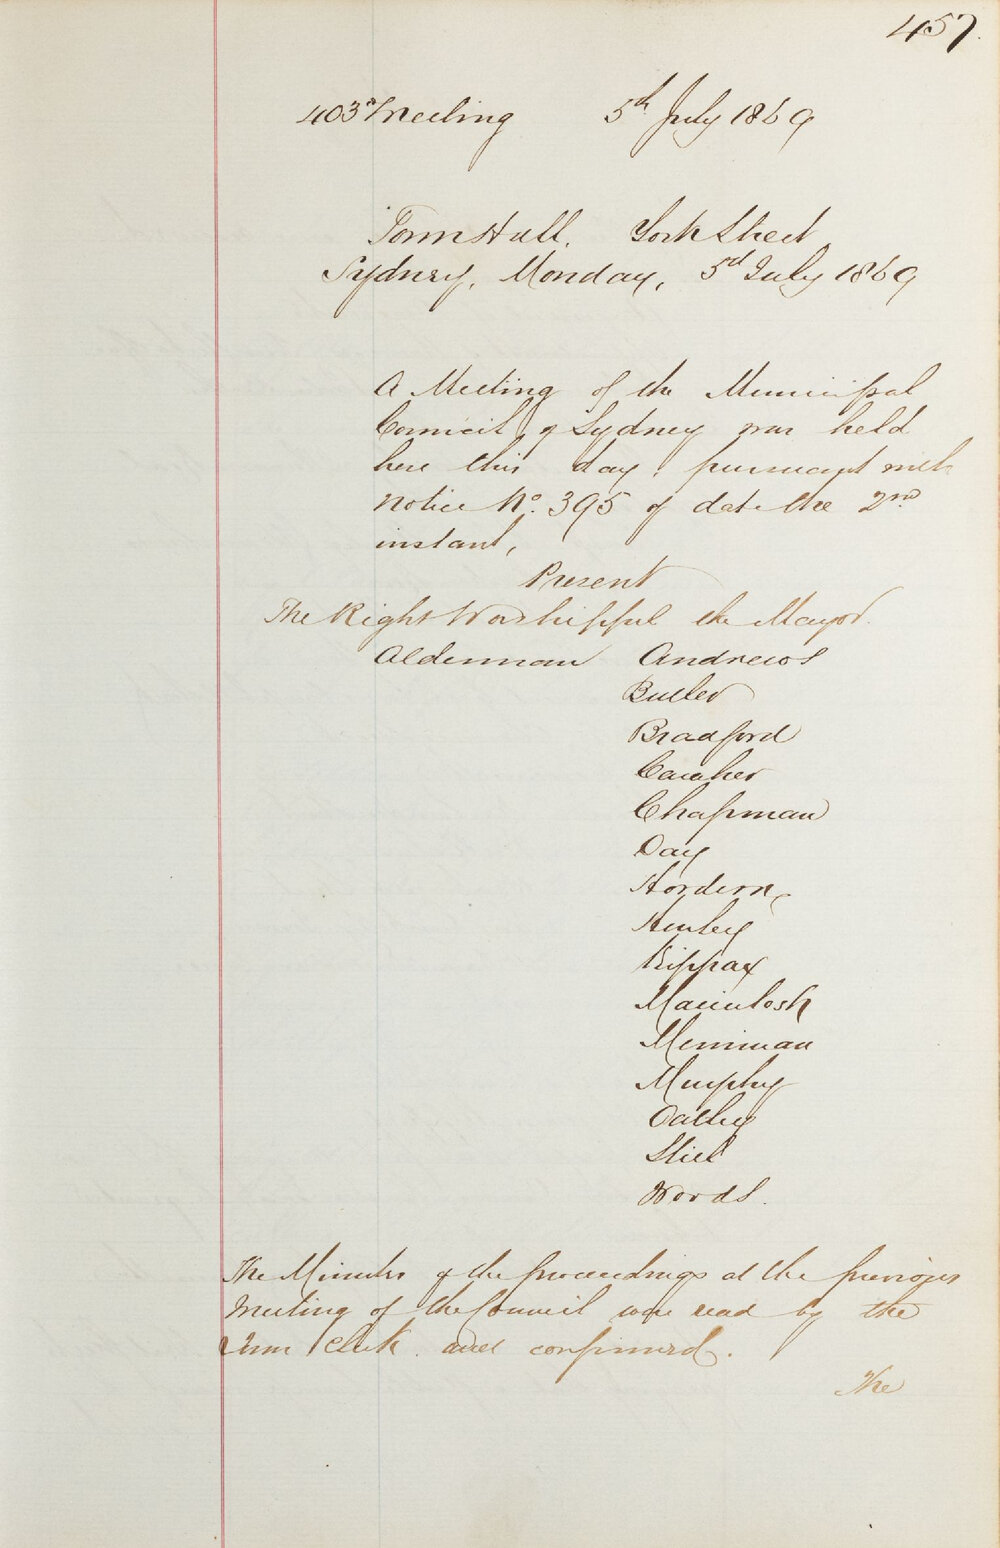 457.
403rd Meeting 5th July 1869
Town Hall, York Street
Sydney, Monday, 5th July 1869
A Meeting of the Municipal
Council of Sydney was held
here this day, pursuant with
notice No. 395 of date the 2nd
instant,
Present
The Right Worshipful the Mayor.
Alderman Andrews
Butler
Bradford
Caraher
Chapman
Day
Hordern
Hurley
Kippax
Macintosh
Merriman
Murphy
Oatley
Steel
Woods.
The Minutes of the proceedings at the previous
Meeting of the Council were read by the
Town Clerk and confirmed.
The